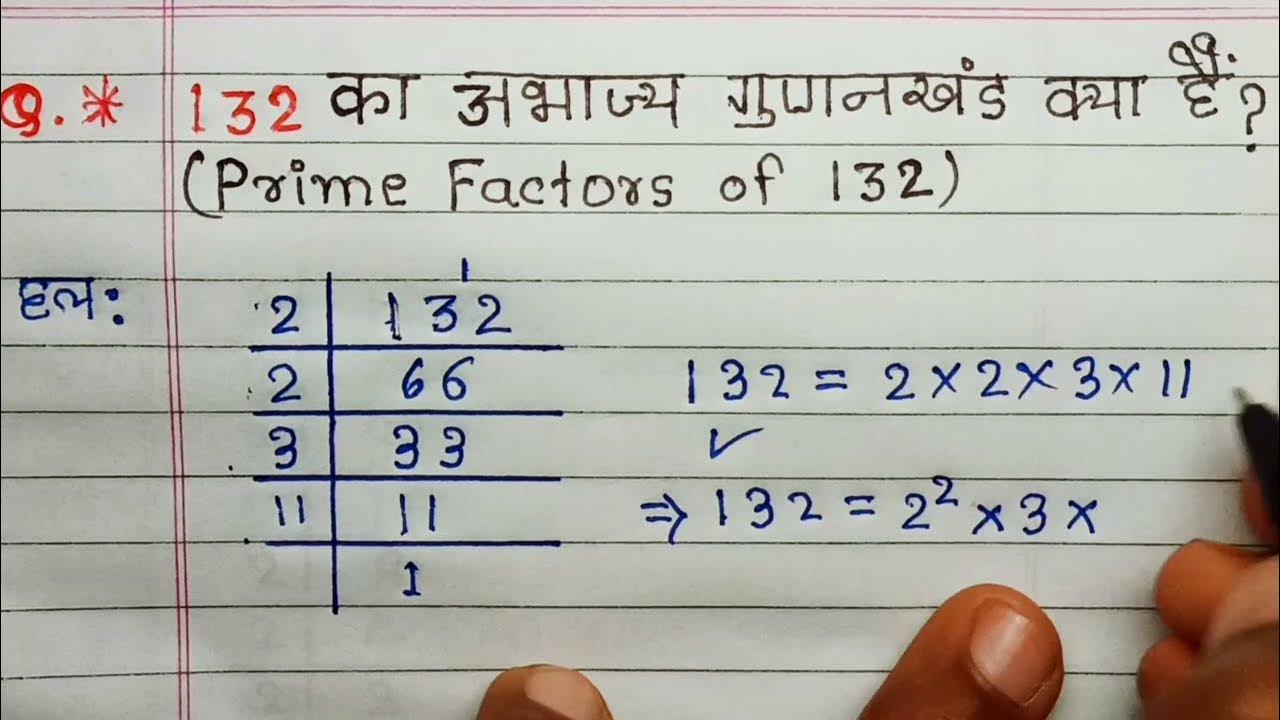 Q.* 132 का अभाज्य गुणनखंड क्या हैं?
(Prime Factors of 132)
हल:
1
2 | 132
2 | 66
3 | 33
11 | 11
1
132 = 2 × 2 × 3 × 11
✓
⇒ 132 = 2² × 3 ×